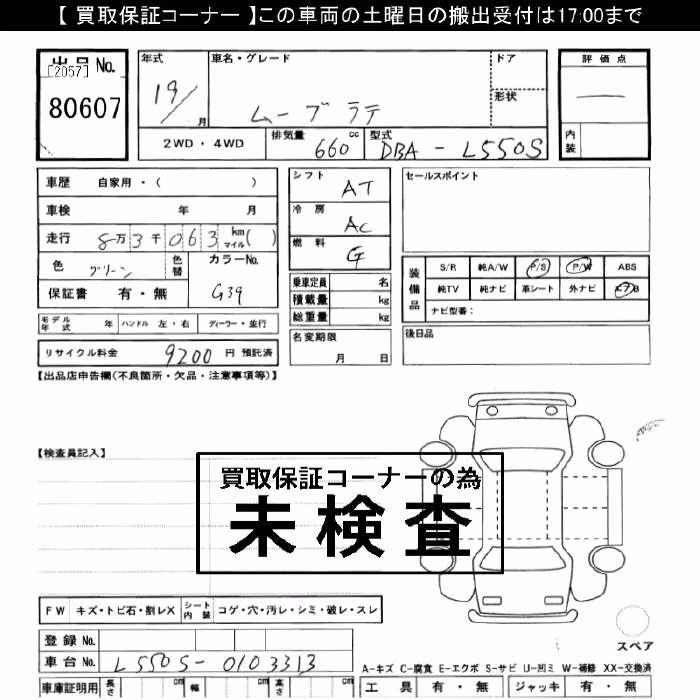 【 買取保証コーナー 】この車両の土曜日の搬出受付は17:00まで
出品 No.
[2057]
80607
年式
19/
月
車名・グレード
ムーブラテ
ドア
形状
評価点
内装
2WD・4WD
排気量
660 cc
型式
DBA - L550S
車歴 自家用・( )
車検 年 月
走行 8万3千063 km マイル( )
色 グリーン
色替
カラーNo.
G39
保証書 有・無
シフト AT
冷房 AC
燃料 G
乗車定員 名
積載量 kg
総重量 kg
名変期限
月 日
セールスポイント
装備品
S/R 純A/W P/S P/W ABS
純TV 純ナビ 革シート 外ナビ エアB
ナビ型番:
後日品
モデル年式 年 ハンドル 左・右 ディーラー・並行
リサイクル料金 9200 円 預託済
【出品店申告欄(不良箇所・欠品・注意事項等)】
【検査員記入】
買取保証コーナーの為
未検査
FW キズ・トビ石・割レX シート内装 コゲ・穴・汚レ・シミ・破レ・スレ
登録 No.
車台 No. L550S-0103313
車庫証明用 長さ cm 幅 cm 高さ cm
スペア
A-キズ C-腐食 E-エクボ S-サビ U-凹ミ W-補修 XX-交換済
工具 有・無 ジャッキ 有・無